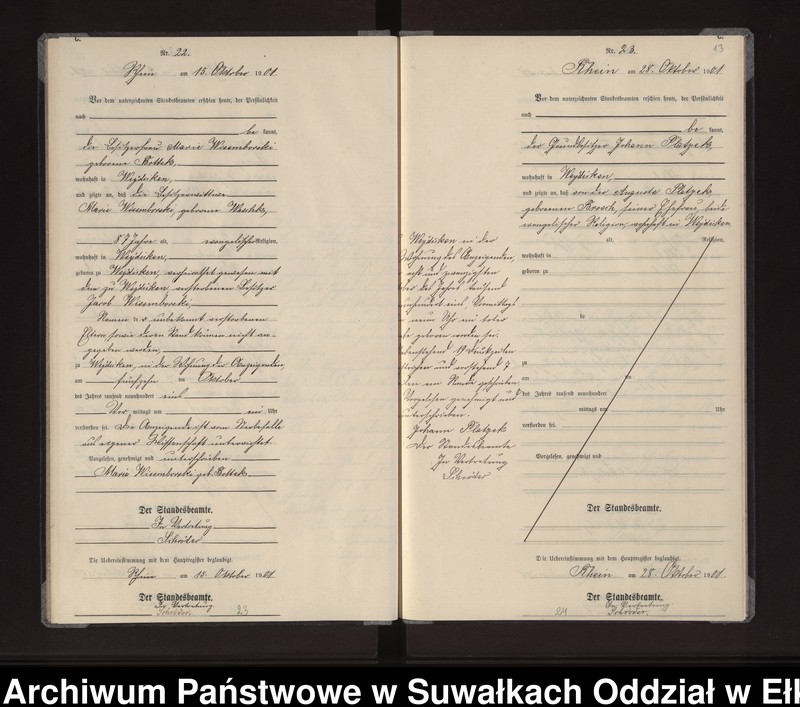 Nr. 22.
Rhein am 15. Oktober 1901.
Vor dem unterzeichneten Standesbeamten erschien heute, der Persönlichkeit
nach
be kannt,
die Besitzerfrau Marie Wisemborski
geborene Bottek,
wohnhaft in Weydicken,
und zeigte an, daß die Besitzerwittwe
Marie Wisemborski, geborene
57 Jahre alt, evangelischer Religion,
wohnhaft in Weydicken,
geboren zu Weydicken, verheirathet gewesen mit
dem zu Weydicken verstorbenen Besitzer
Jacob Wisemborski,
Namen der unbekannt verstorbenen
Eltern, sowie deren Stand können nicht an-
gegeben werden,
zu Weydicken, in der Wohnung der Anzeigenden,
am fünfzehn ten Oktober
des Jahres tausend neunhundert eins
Vor mittags um ein Uhr
verstorben sei. Die Anzeigende ist vom Sterbefalle
aus eigener Wissenschaft unterrichtet.
Vorgelesen, genehmigt und unterschrieben
Marie Wisemborski geb. Bottek
Der Standesbeamte.
In Vertretung
Schröder
Die Uebereinstimmung mit dem Hauptregister beglaubigt.
Rhein am 15. Oktober 1901.
Der Standesbeamte.
In Vertretung
Schröder.
23
Nr. 23.
13
Rhein am 28. Oktober 1901
Vor dem unterzeichneten Standesbeamten erschien heute, der Persönlichkeit
nach
be kannt,
der Grundbesitzer Johann Platzek
wohnhaft in Weydicken,
und zeigte an, daß von der Auguste Platzek
geborenen Brosch, seiner Ehefrau, beide
evangelischer Religion, wohnhaft in Weydicken
alt, Religion,
wohnhaft in
geboren zu
zu
zu
am ten
des Jahres tausend neunhundert
mittags um Uhr
verstorben sei.
Vorgelesen, genehmigt und
Weydicken in der
Wohnung des Anzeigenden,
acht und zwanzigsten
des Jahres tausend
neunhundert eins, Vormittags
neun Uhr ein todtes
geboren worden sei.
19 Druckzeilen
und vorstehend 7
am Rande geschrieben.
Vorgelesen, genehmigt und
unterschrieben.
Johann Platzek
Der Standesbeamte
In Vertretung
Schröder
Der Standesbeamte.
Die Uebereinstimmung mit dem Hauptregister beglaubigt.
Rhein am 28. Oktober 1901.
Der Standesbeamte.
In Vertretung
Schröder.
24
Archiwum Państwowe w Suwałkach Oddział w Ełk